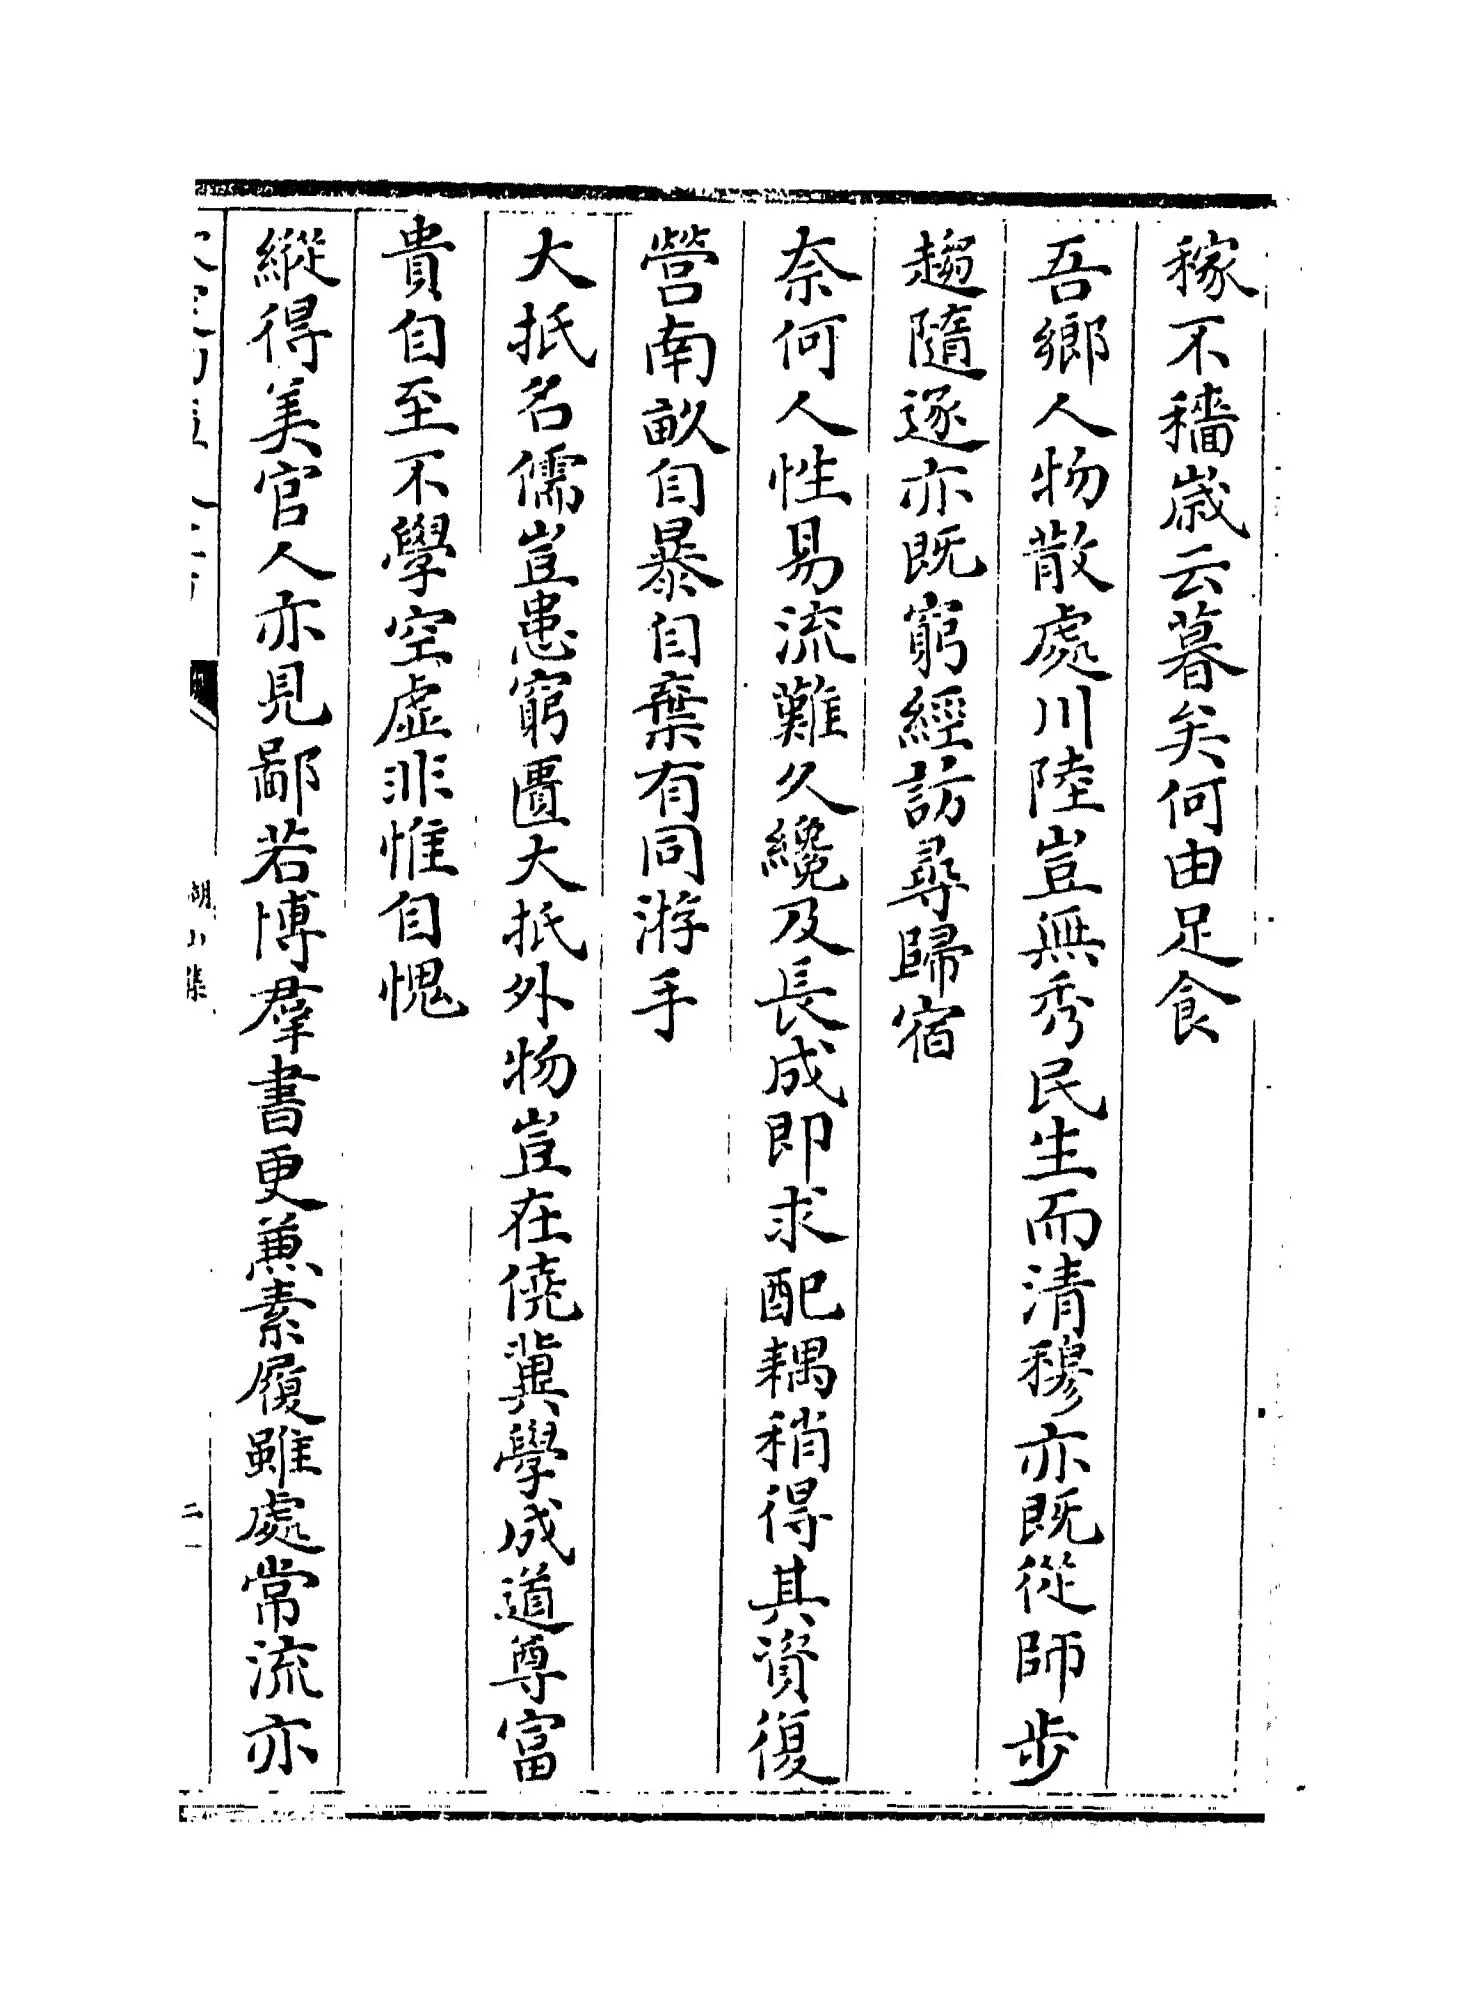 稼不穡歲云暮矣何由足食
吾鄉人物散處川陸豈無秀民生而清穆亦既從師步
趨隨逐亦既窮經訪尋歸宿
奈何人性易流難久纔及長成即求配耦稍得其資復
營南畝自暴自棄有同游手
大抵名儒豈患窮匱大抵外物豈在僥冀學成道尊富
貴自至不學空虛非惟自愧
縱得美官人亦見鄙若博羣書更兼素履雖處常流亦
湖山集
二一